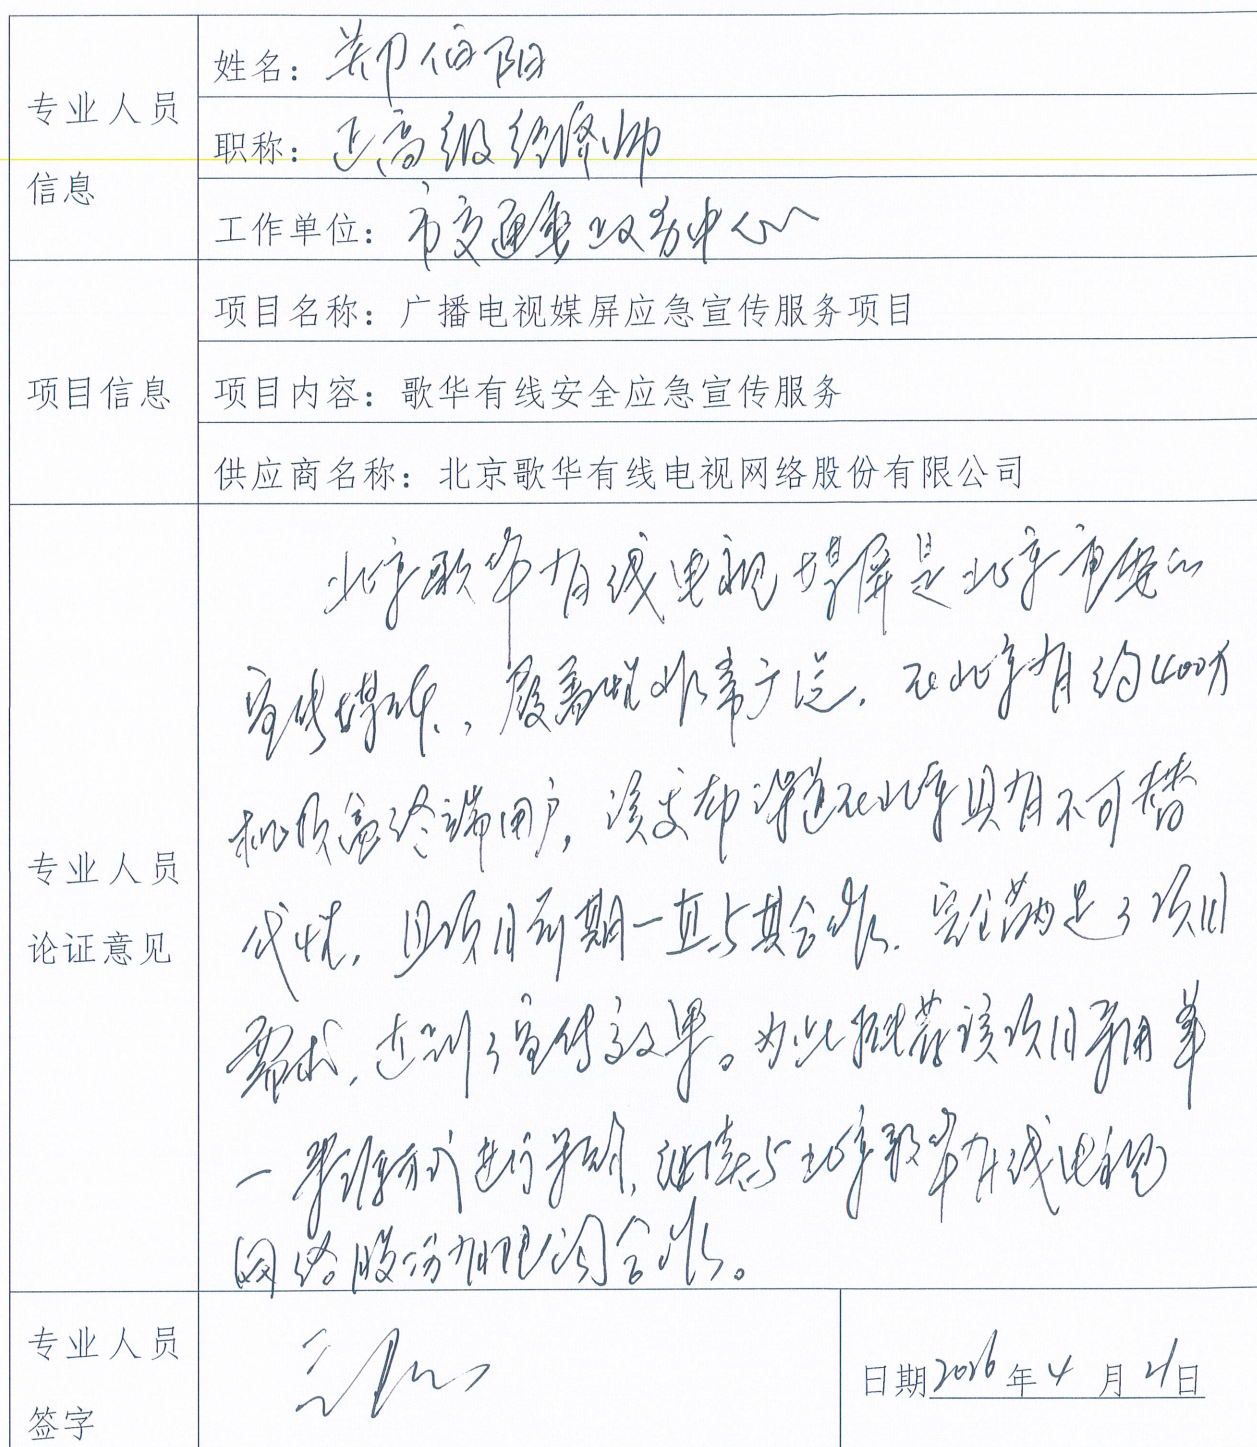 专业人员
信息
姓名：郑伯阳
职称：正高级经济师
工作单位：市交通运输业务中心
项目信息
项目名称：广播电视媒屏应急宣传服务项目
项目内容：歌华有线安全应急宣传服务
供应商名称：北京歌华有线电视网络股份有限公司
专业人员
论证意见
北京歌华有线电视媒屏是北京市
宣传媒体，覆盖非常广泛，在北京有约400万
机顶盒终端用户，该发布渠道在北京具有不可替
代性，且项目前期一直与其合作，完全满足了项目
需求，达到了宣传效果。为此推荐该项目采用单
一来源方式进行采购，继续与北京歌华有线电视
网络股份有限公司合作。
专业人员
签字
日期2026年4月21日